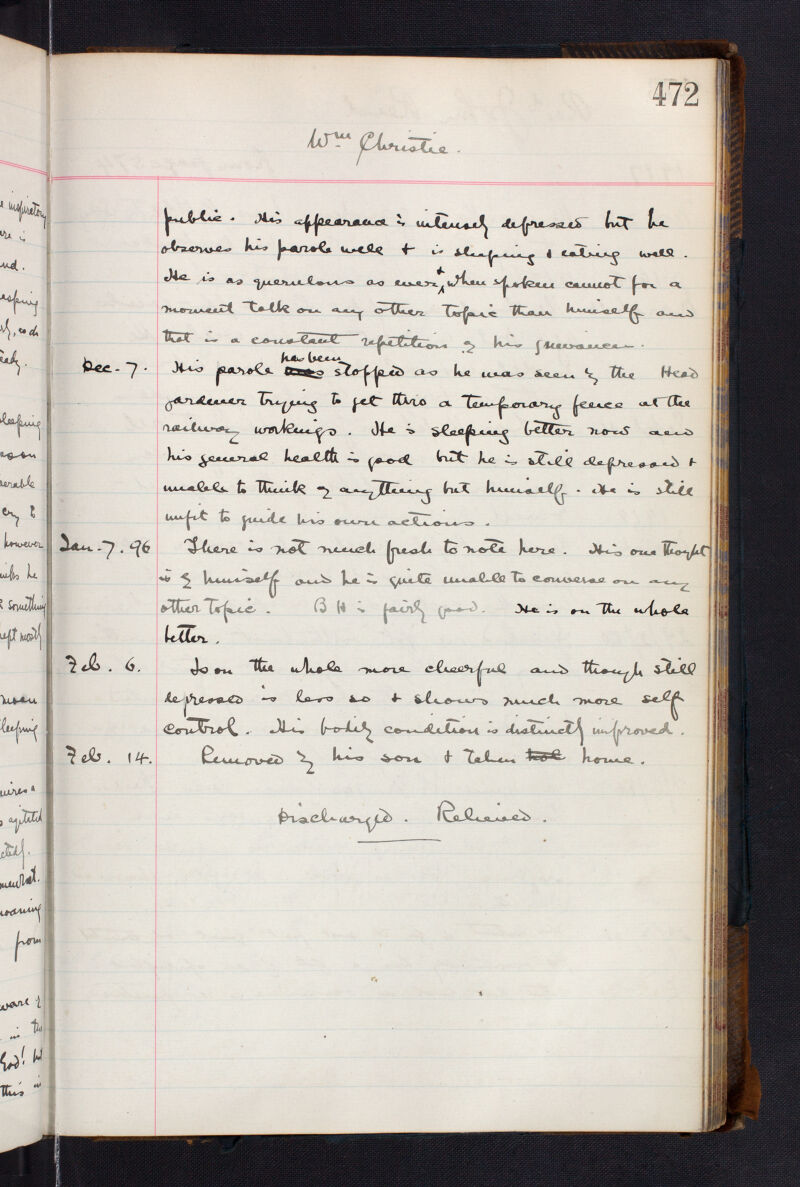 472
Wm Christie.
public. His appearance is intensely depressed but he
observes his parole well & is sleeping & eating well.
He is as querulous as ever, & when spoken cannot for a
moment talk on any other topic than himself and
that is a constant repetition of his grievances.
Dec. 7. His parole has been was stopped as he was seen by the Head
gardener trying to get thro a temporary fence at the
railway workings. He is sleeping better now and
his general health is good but he is still depressed &
unable to think of anything but himself. He is still
unfit to guide his own actions.
Jan. 7. 96 There is not much fresh to note here. His one thought
is of himself and he is quite unable to converse on any
other topic. B H is fairly good. He is on the whole
better.
Feb. 6. Is on the whole more cheerful and though still
depressed is less so & shows much more self
control. His bodily condition is distinctly improved.
Feb. 14. Removed by his son & taken home.
Discharged. Relieved.
inspiratory
sleeping
however
he
something
kept mostly
sleeping
agitated
somewhat.
moaning
from
aware of
in the
God! but
this is